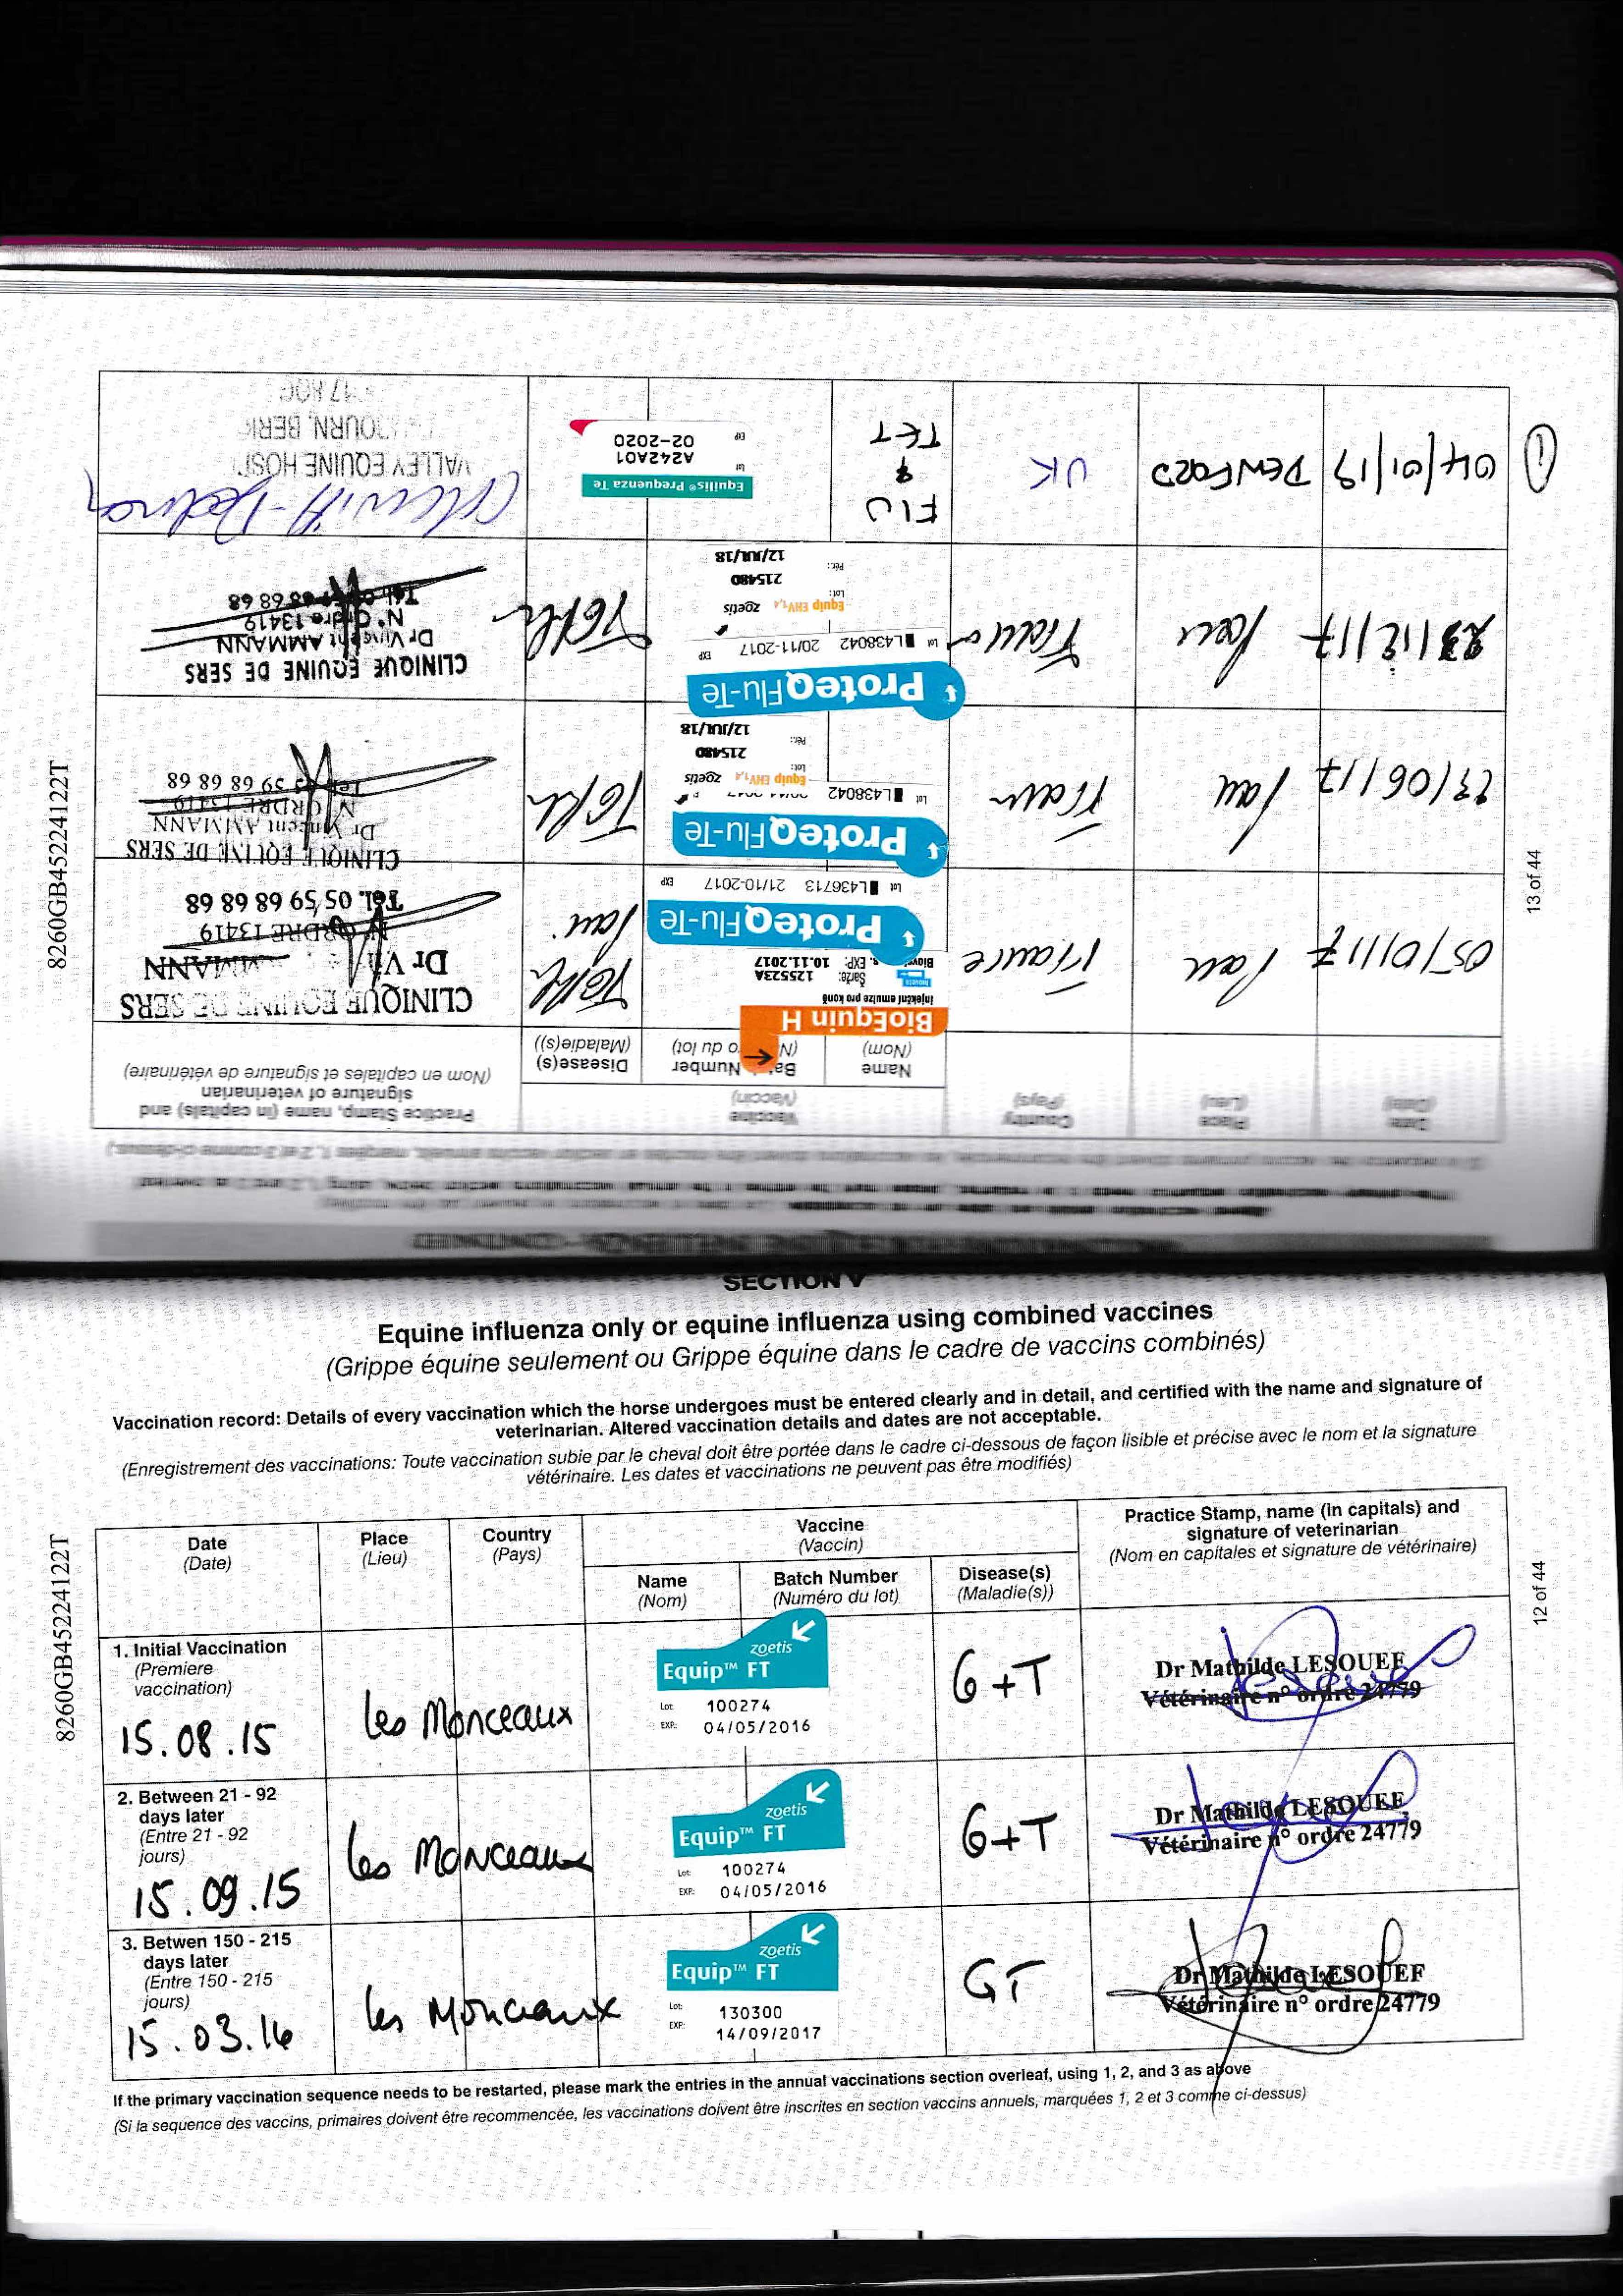 SECTION V
Equine influenza only or equine influenza using combined vaccines
(Grippe équine seulement ou Grippe équine dans le cadre de vaccins combinés)
Vaccination record: Details of every vaccination which the horse undergoes must be entered clearly and in detail, and certified with the name and signature of
veterinarian. Altered vaccination details and dates are not acceptable.
(Enregistrement des vaccinations: Toute vaccination subie par le cheval doit être portée dans le cadre ci-dessous de façon lisible et précise avec le nom et la signature
vétérinaire. Les dates et vaccinations ne peuvent pas être modifiés)
8260GB45224122T
12 of 44
Date
(Date)
Place
(Lieu)
Country
(Pays)
Vaccine
(Vaccin)
Name
(Nom)
Batch Number
(Numéro du lot)
Disease(s)
(Maladie(s))
Practice Stamp, name (in capitals) and
signature of veterinarian
(Nom en capitales et signature de vétérinaire)
1. Initial Vaccination
(Premiere
vaccination)
15.08.15
Les Monceaux
zoetis
Equip™ FT
Lot: 100274
EXP.: 04/05/2016
G+T
Dr Mathilde LESOUEF
Vétérinaire n° ordre 24779
2. Between 21 - 92
days later
(Entre 21 - 92
jours)
15.09.15
Les Monceaux
zoetis
Equip™ FT
Lot: 100274
EXP.: 04/05/2016
G+T
Dr Mathilde LESOUEF
Vétérinaire n° ordre 24779
3. Betwen 150 - 215
days later
(Entre 150 - 215
jours)
15.03.16
Les Monceaux
zoetis
Equip™ FT
Lot: 130300
EXP.: 14/09/2017
GT
Dr Mathilde LESOUEF
Vétérinaire n° ordre 24779
If the primary vaccination sequence needs to be restarted, please mark the entries in the annual vaccinations section overleaf, using 1, 2, and 3 as above
(Si la sequence des vaccins, primaires doivent être recommencée, les vaccinations doivent être inscrites en section vaccins annuels, marquées 1, 2 et 3 comme ci-dessus)
8260GB45224122T
13 of 44
Date
(Date)
Place
(Lieu)
Country
(Pays)
Vaccine
(Vaccin)
Name
(Nom)
Batch Number
(N o du lot)
Disease(s)
(Maladie(s))
Practice Stamp, name (in capitals) and
signature of veterinarian
(Nom en capitales et signature de vétérinaire)
05/01/17
Pau
France
BioEquin H
injekční emulze pro koně
Šarže: 125523A
EXP: 10.11.2017
ProteqFlu-Te
Lot L436713 21/10-2017 EXP
CLINIQUE EQUINE DE SERS
Dr Vi AMMANN
N° ORDRE 13419
Tél. 05 59 68 68 68
23/06/17
Pau
ProteqFlu-Te
Lot L438042
Equip EHV1,4 zoetis
Lot: 215480
Pér.: 12/JUL/18
CLINIQUE EQUINE DE SERS
Dr Vincent AMMANN
N° ORDRE 13419
Tél. 05 59 68 68 68
23/12/17
Pau
ProteqFlu-Te
Lot L438042 20/11-2017 EXP
Equip EHV1,4 zoetis
Lot: 215480
Pér.: 12/JUL/18
CLINIQUE EQUINE DE SERS
Dr Vincent AMMANN
N° Ordre 13419
68 68
① 04/01/19
DENFORD
UK
FLU
&
TET
Equilis® Prequenza Te
Lot A242A01
EXP 02-2020
VALLEY EQUINE HOSPI